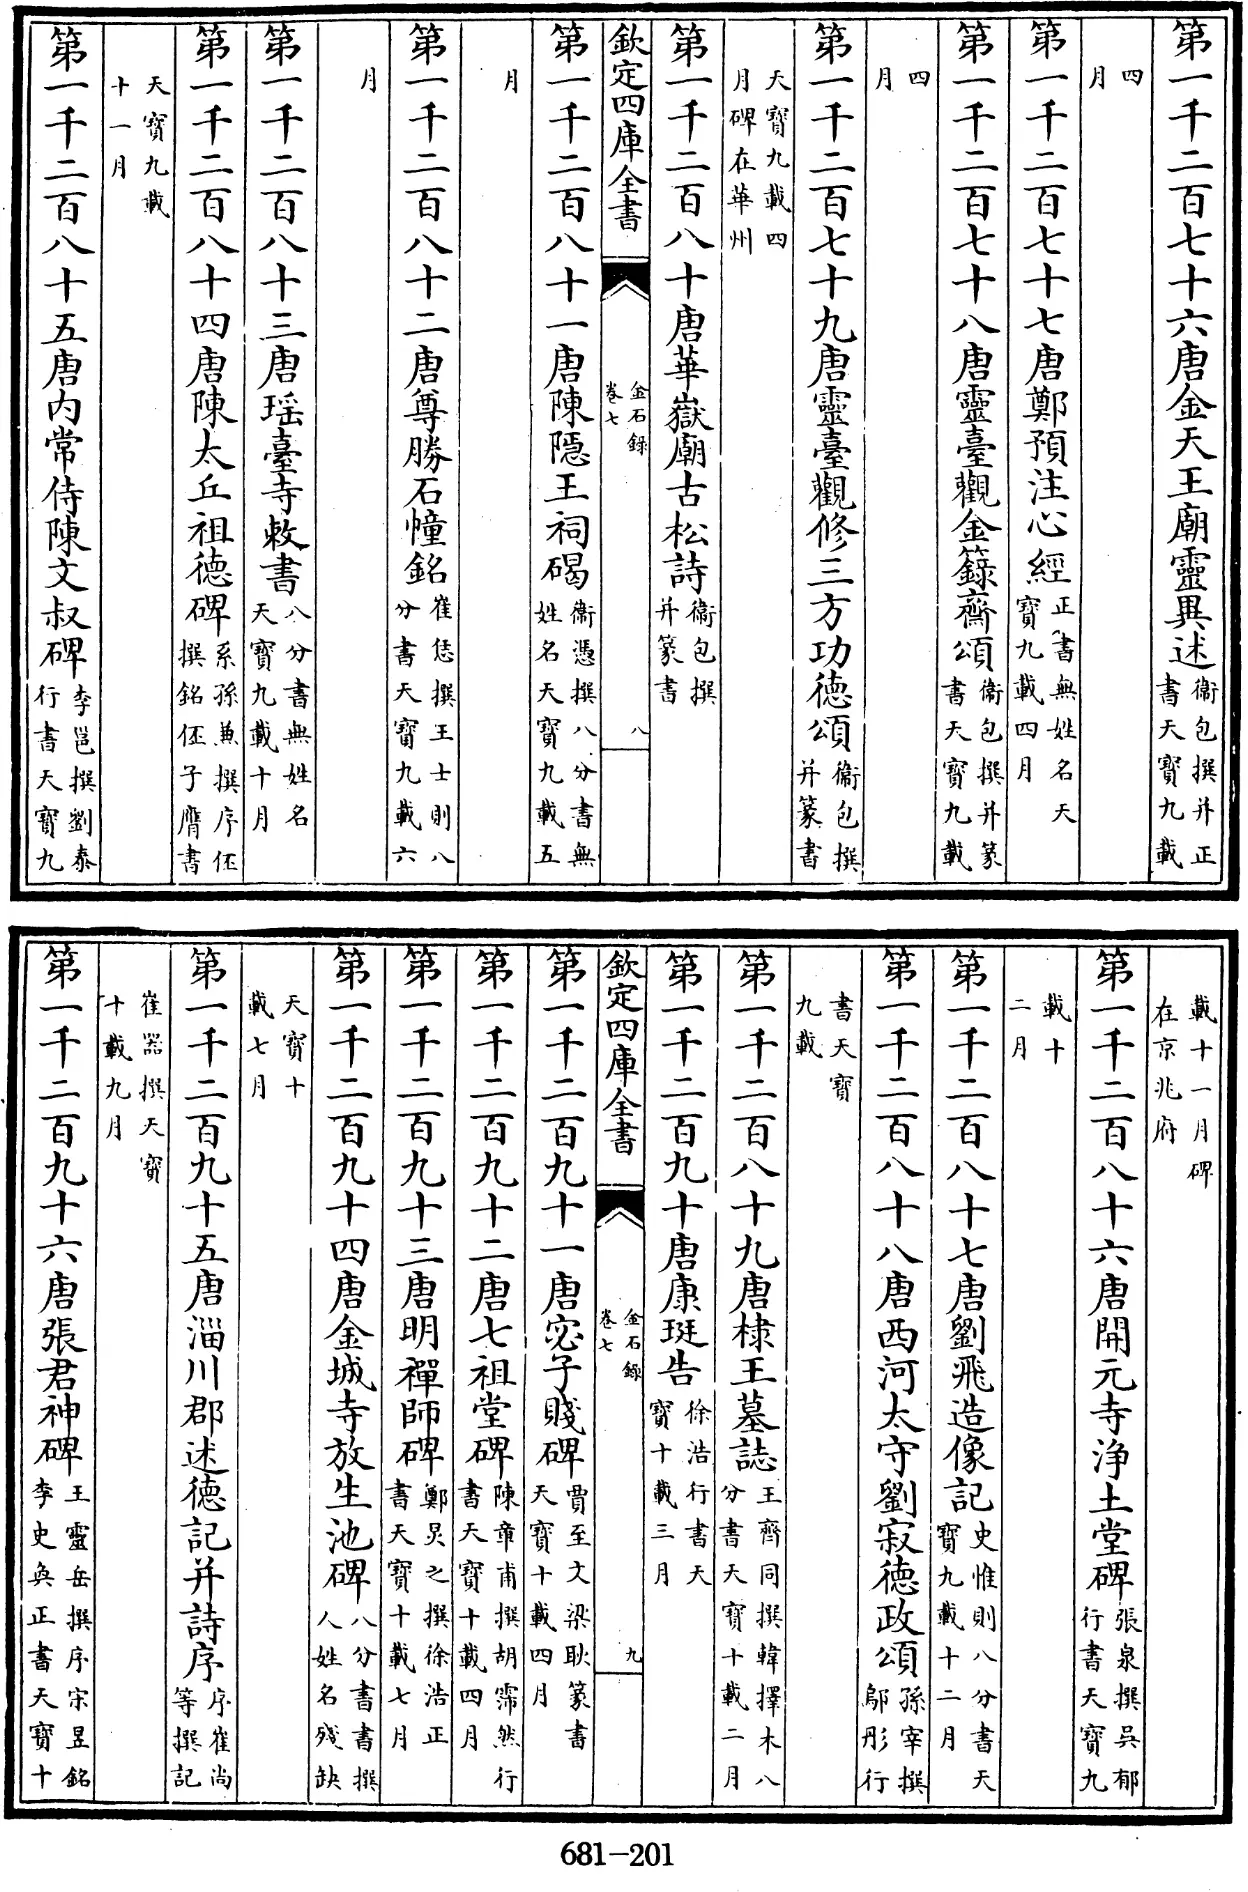 第一千二百七十六唐金天王廟靈異述衞包撰并正書天寶九載
四月
第一千二百七十七唐鄭預注心經正書無姓名天寶九載四月
第一千二百七十八唐靈臺觀金籙齋頌衞包撰并篆書天寶九載
四月
第一千二百七十九唐靈臺觀修三方功德頌衞包撰并篆書
天寶九載四月碑在華州
第一千二百八十唐華嶽廟古松詩衞包撰并篆書
欽定四庫全書 金石錄卷七 八
第一千二百八十一唐陳隱王祠碣衞憑撰八分書無姓名天寶九載五
月
第一千二百八十二唐尊勝石幢銘崔恁撰王士則八分書天寶九載六
月
第一千二百八十三唐瑤臺寺敕書八分書無姓名天寶九載十月
第一千二百八十四唐陳太丘祖德碑系孫兼撰序伾撰銘伾子膺書
天寶九載十一月
第一千二百八十五唐内常侍陳文叔碑李邕撰劉泰行書天寶九
載十一月碑在京兆府
第一千二百八十六唐開元寺淨土堂碑張泉撰吳郁行書天寶九
載十二月
第一千二百八十七唐劉飛造像記史惟則八分書天寶九載十二月
第一千二百八十八唐西河太守劉寂德政頌孫宰撰鄔彤行
書天寶九載
第一千二百八十九唐棣王墓誌王齊同撰韓擇木八分書天寶十載二月
第一千二百九十唐康珽告徐浩行書天寶十載三月
欽定四庫全書 金石錄卷七 九
第一千二百九十一唐宓子賤碑賈至文梁耿篆書天寶十載四月
第一千二百九十二唐七祖堂碑陳章甫撰胡霈然行書天寶十載四月
第一千二百九十三唐明禪師碑鄭炅之撰徐浩正書天寶十載七月
第一千二百九十四唐金城寺放生池碑八分書書撰人姓名殘缺
天寶十載七月
第一千二百九十五唐淄川郡述德記并詩序序崔尚等撰記
崔器撰天寶十載九月
第一千二百九十六唐張君神碑王靈岳撰序宋昱銘李史奐正書天寶十
681-201